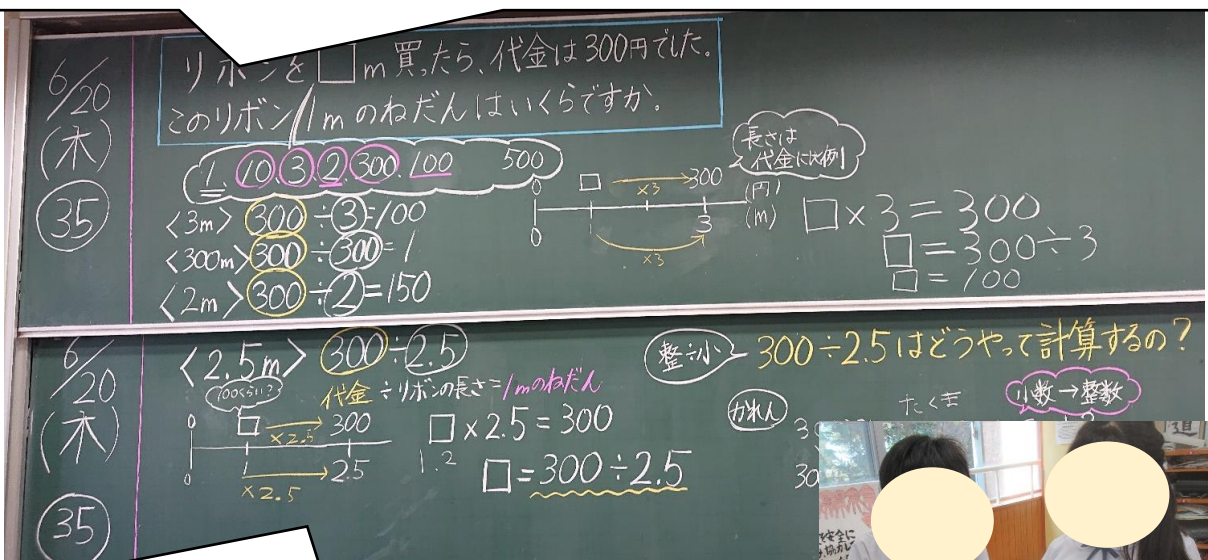 6/20
(木)
35
リボンを□m買ったら、代金は300円でした。
このリボン1mのねだんはいくらですか。
1, 10, 3, 2, 300, 100 500
<3m> 300÷3=100
<300m> 300÷300=1
<2m> 300÷2=150
長さは
代金に比例
0 □ ×3 300 (円)
0 1 3 (m)
×3
□×3=300
□=300÷3
□=100
6/20
(木)
35
<2.5m> 300÷2.5
代金÷リボンの長さ=1mのねだん
100くらい?
0 □ ×2.5 300
0 1 2.5
×2.5
□×2.5=300
1.2
□=300÷2.5
整÷小
300÷2.5はどうやって計算するの?
かれん
たくま
小数→整数
3
30
道